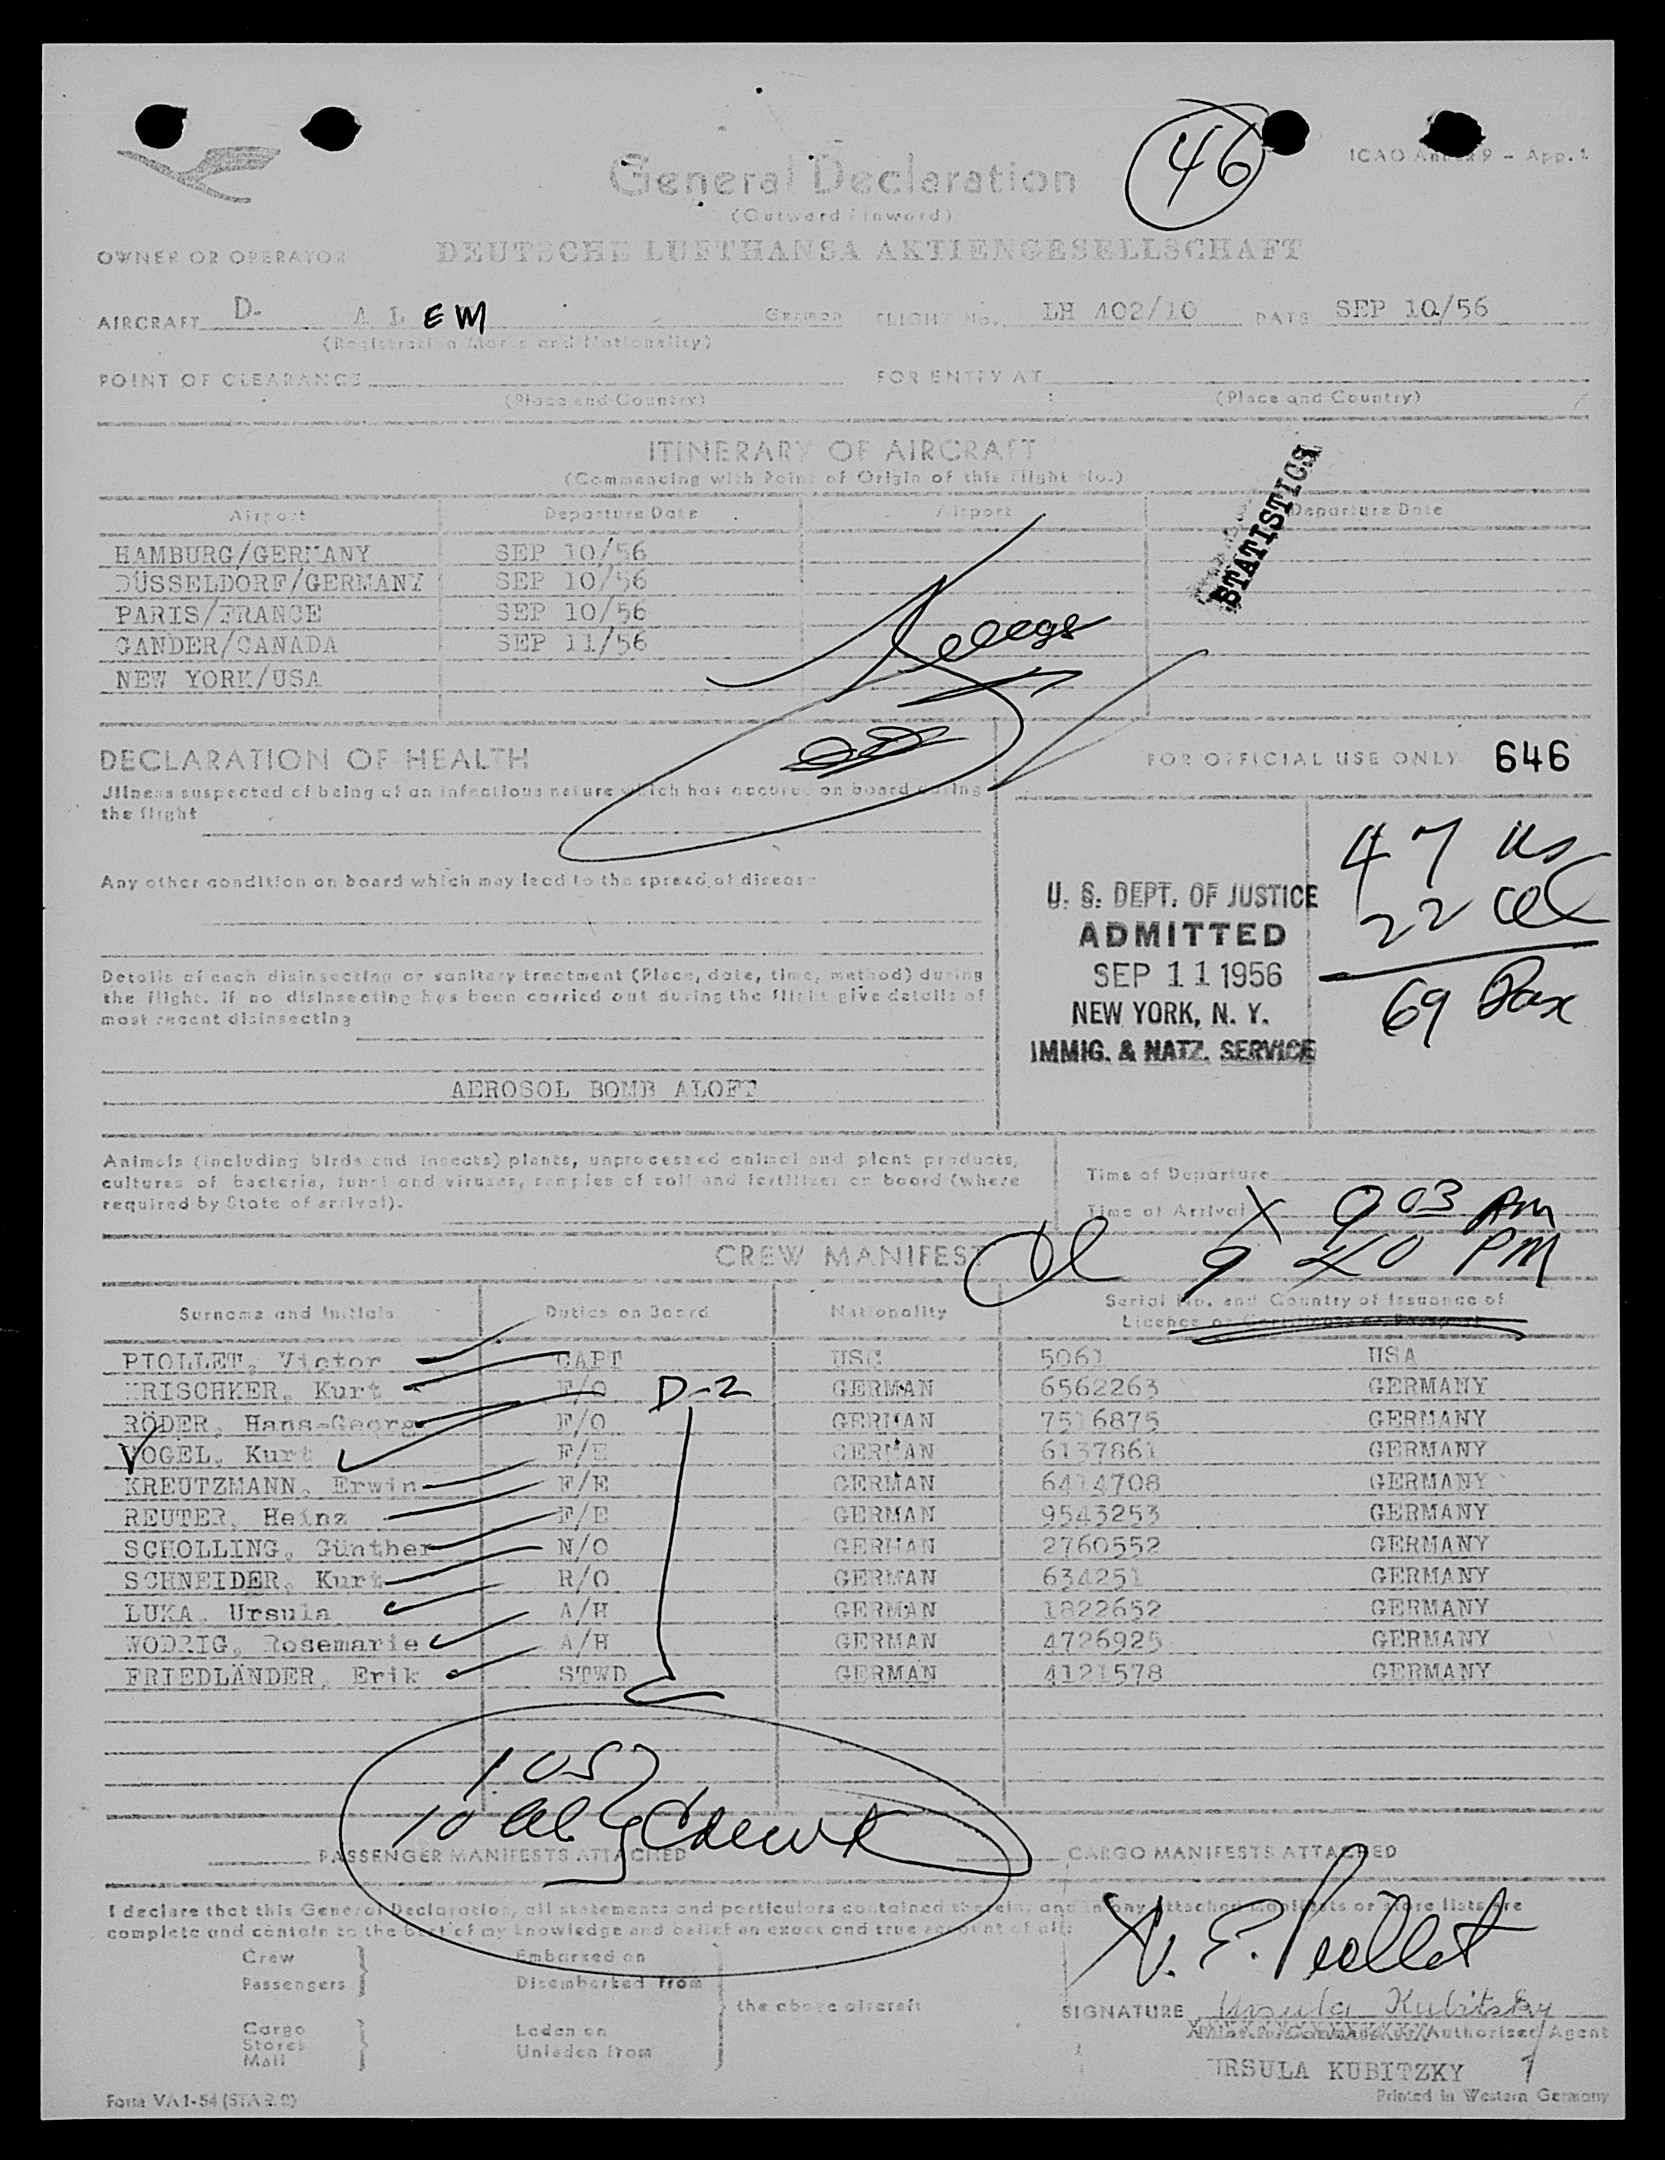 46
ICAO Annex 9 - App. 1
General Declaration
(Outward / Inward)
OWNER OR OPERATOR DEUTSCHE LUFTHANSA AKTIENGESELLSCHAFT
AIRCRAFT D- A L E M German FLIGHT No. LH 402/10 DATE SEP 10/56
(Registration Marks and Nationality)
POINT OF CLEARANCE FOR ENTRY AT
(Place and Country) (Place and Country)
ITINERARY OF AIRCRAFT
(Commencing with Point of Origin of this flight No.)
Airport Departure Date Airport Departure Date
STATISTICS
HAMBURG/GERMANY SEP 10/56
DÜSSELDORF/GERMANY SEP 10/56
PARIS/FRANCE SEP 10/56
GANDER/CANADA SEP 11/56
NEW YORK/USA
DECLARATION OF HEALTH FOR OFFICIAL USE ONLY 646
Jllness suspected of being of an infectious nature which has occured on board during
the flight
47 us
22
69 Pax
Any other condition on board which may lead to the spread of disease
U. S. DEPT. OF JUSTICE
ADMITTED
SEP 11 1956
NEW YORK, N. Y.
IMMIG. & NATZ. SERVICE
Details of each disinsecting or sanitary treatment (Place, date, time, method) during
the flight. If no disinsecting has been carried out during the flight give details of
most recent disinsecting
AEROSOL BOMB ALOFT
Animals (including birds and insects) plants, unprocessed animal and plant products,
cultures of bacteria, fungi and viruses, samples of soil and fertilizer on board (where
required by State of arrival).
Time of Departure
Time of Arrival X 9 03 AM
9 40 PM
CREW MANIFEST
Surname and Initials Duties on Board Nationality Serial No. and Country of Issuance of
Licence or Certificate or Passport
PIOLLET, Victor CAPT USC 5061 USA
KRISCHKER, Kurt F/O D-2 GERMAN 6562263 GERMANY
RÖDER, Hans-Georg F/O GERMAN 7516875 GERMANY
VOGEL, Kurt F/E GERMAN 6137861 GERMANY
KREUTZMANN, Erwin F/E GERMAN 6414708 GERMANY
REUTER, Heinz F/E GERMAN 9543253 GERMANY
SCHOLLING, Günther N/O GERMAN 2760552 GERMANY
SCHNEIDER, Kurt R/O GERMAN 634251 GERMANY
LUKA, Ursula A/H GERMAN 1822652 GERMANY
WODRIG, Rosemarie A/H GERMAN 4726925 GERMANY
FRIEDLÄNDER, Erik STWD GERMAN 4121578 GERMANY
1 US
10 al. Crew
PASSENGER MANIFESTS ATTACHED CARGO MANIFESTS ATTACHED
I declare that this General Declaration, all statements and particulars contained therein, and in any attached manifests or store lists are
complete and contain to the best of my knowledge and belief an exact and true account of all:
Crew
Passengers
Embarked on
Disembarked from
the above aircraft
Cargo
Stores
Mail
Laden on
Unladen from
V. E. Piollet
SIGNATURE Ursula Kubitzky
Authorised Agent
URSULA KUBITZKY
Form VA 1-54 (STA R 0) Printed in Western Germany